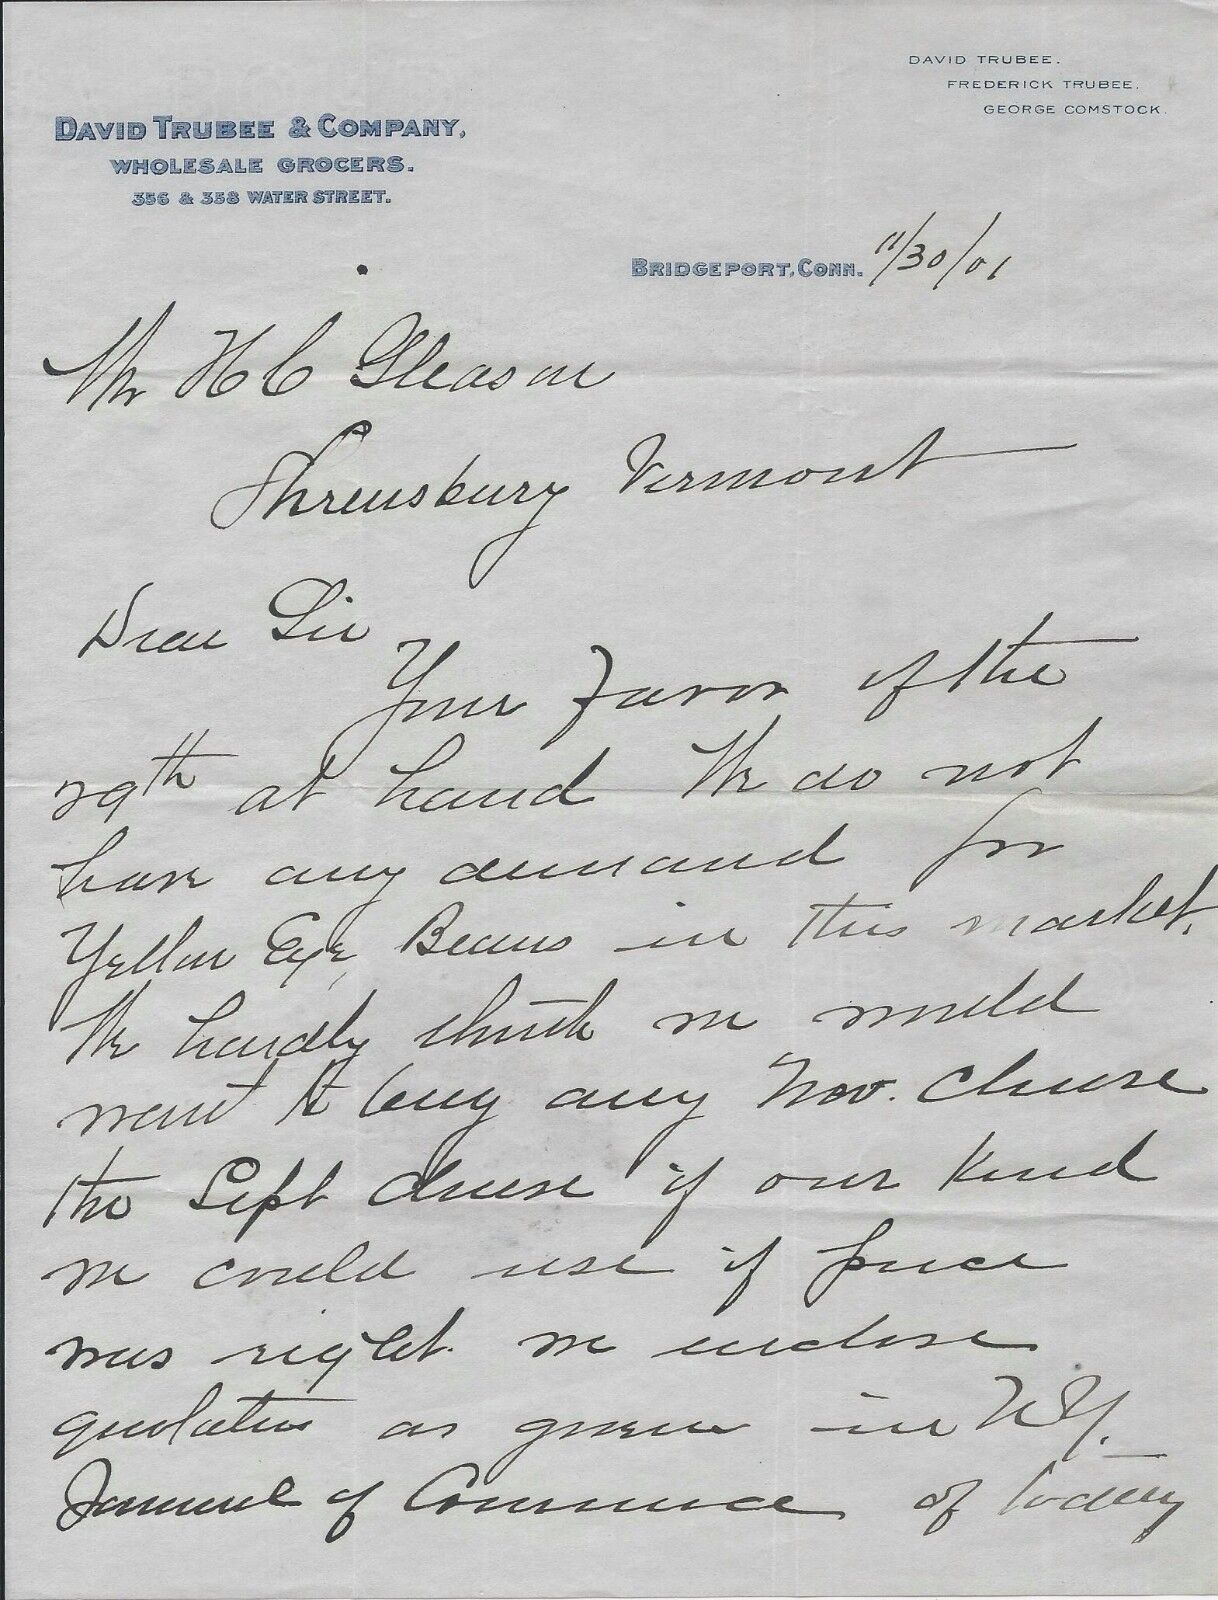 DAVID TRUBEE.
FREDERICK TRUBEE.
GEORGE COMSTOCK.
DAVID TRUBEE & COMPANY,
WHOLESALE GROCERS.
356 & 358 WATER STREET.
BRIDGEPORT, CONN. 11/30/01
Mr H C Gleason
Shrewsbury Vermont
Dear Sir
Your favor of the
29th at hand We do not
have any demand for
Yellow Eye Beans in this market.
We hardly think we would
want to buy any Nov. Cheese
the Sept Cheese if our kind
we could use if price
was right. we enclose
quotations as given in N.Y.
Journal of Commerce of today